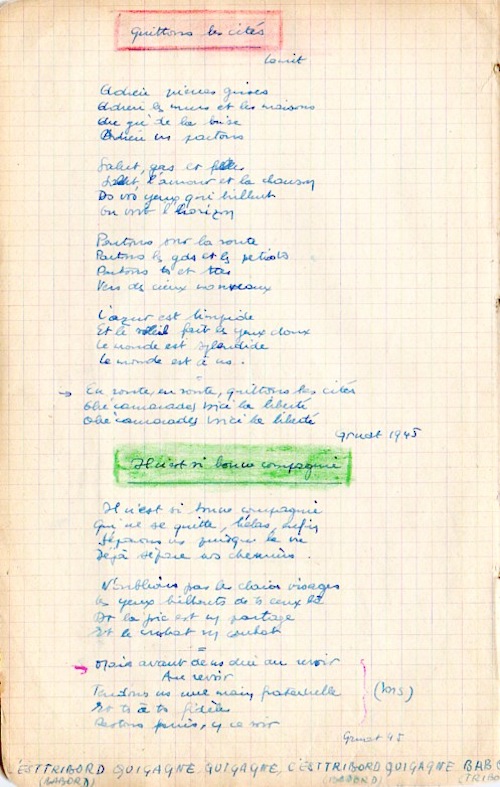 Quittons les cités
Canit
Adieu pierres grises
Adieu les murs et les maisons
de la bise
Adieu ns partons
Salut, gas et filles
Salut, l'amour et la chanson
Ds vos yeux qui brillent
On voit l'horizon
Partons sur la route
Partons les gas et les petiots
Partons ts et ttes
Vers des cieux nouveaux
L'azur est limpide
Et le soleil fait les yeux doux
Le monde est splendide
Le monde est à ns.
→ En route, en route, quittons les cités
Ohé camarades voici la liberté
Ohé camarades voici la liberté
1945
Il n'est si bonne compagnie
Il n'est si bonne compagnie
Qui ne se quitte, hélas, enfin
Séparons ns puisque la vie
Déjà sépare nos chemins.
N'oublions pas les clairs visages
les yeux brillants de ts ceux là
la joie est un partage
Et le combat un combat
=
→ Mais avant de ns dire au revoir
Au revoir
Tendons ns une main fraternelle
(bis)
Et ts à ts fidèles
Restons ce soir
45
C'EST TRIBORD QUI GAGNE, QUI GAGNE, C'EST TRIBORD QUI GAGNE BAB
(BABORD) (BABORD) (TRIBO